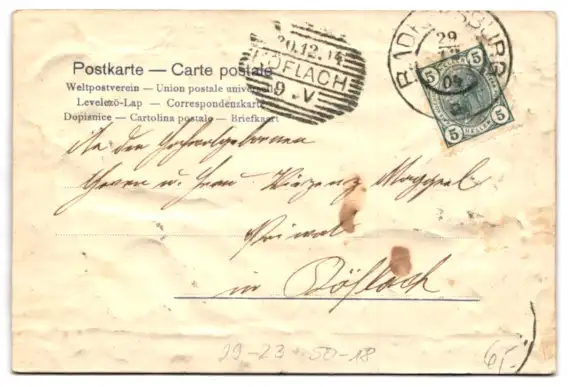 Postkarte — Carte postale
Weltpostverein — Union postale universelle
Levelező-Lap — Correspondenzkarte
Dopisnice — Cartolina postale — Briefkaart
20.12.14
KÖFLACH
9 V
RADKERSBURG
29
04
5 5
5 HELLER 5
An die Hochwohlgeborenen
Herrn u. Frau Vinzenz
Privat
in Köflach
29-23+50-18